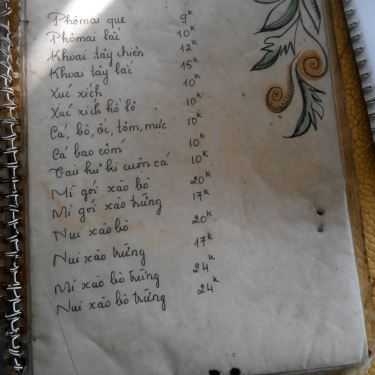 Phômai que 9k
Phômai lắc 10k
Khoai tây chiên 12k
Khoai tây lắc 15k
Xúc xích 10k
Xúc xích hồ lô 10k
Cá, bò, ốc, tôm, mực 10k
Cá bao cốm 10k
Tàu hủ ki cuốn cá 10k
Mì gói xào bò 20k
Mì gói xào trứng 17k
Nui xào bò 20k
Nui xào trứng 17k
Mì xào bò trứng 24k
Nui xào bò trứng 24k